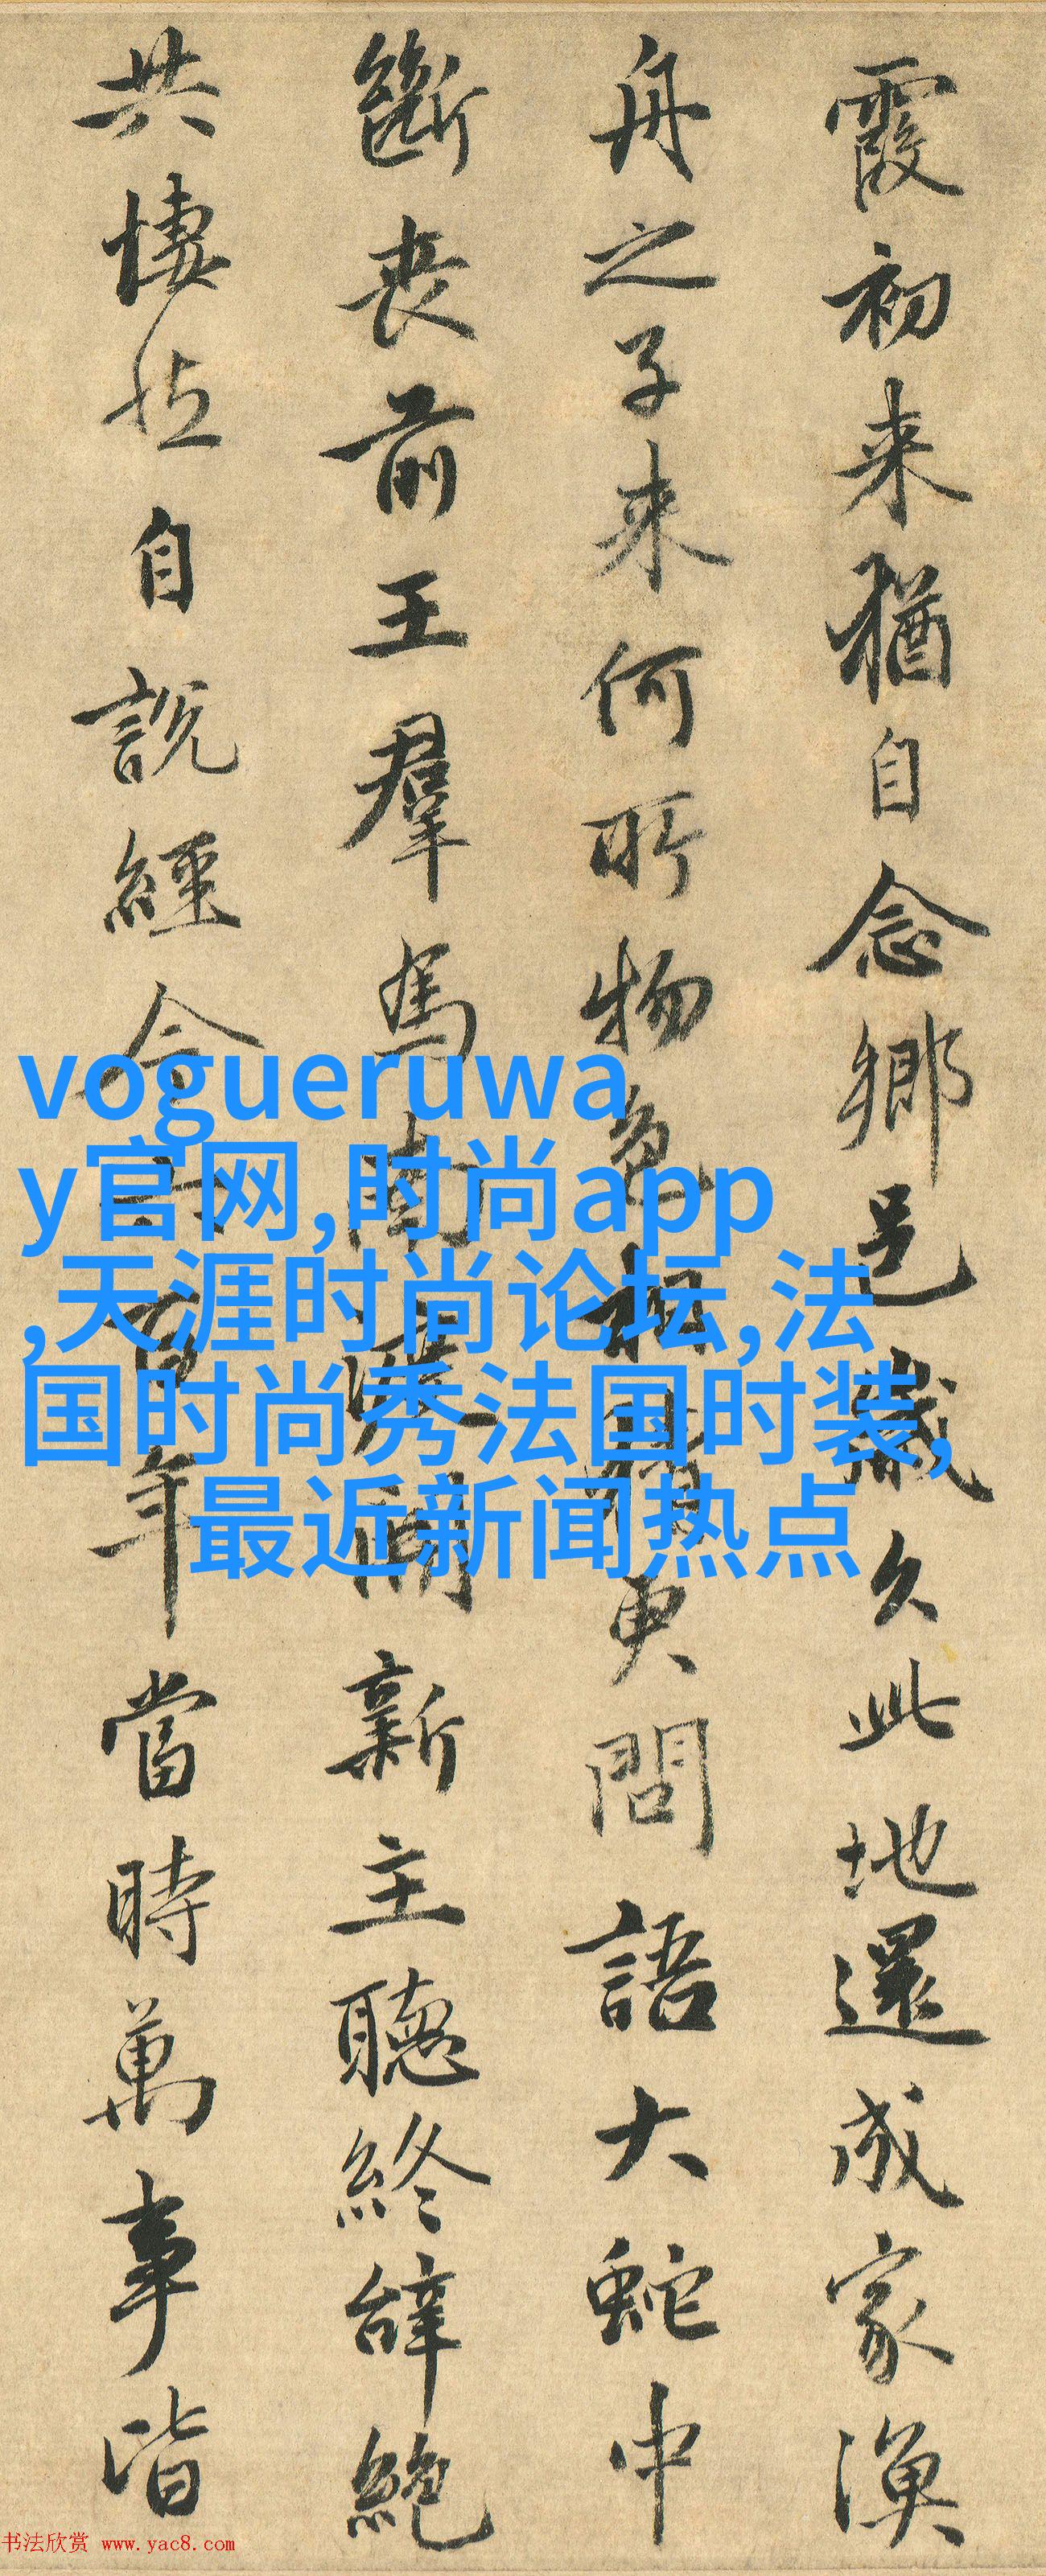 霞初来猶自念鄉邑歲久此地還成家漁
舟之子来何所物色相猜更問語大蛇中
斷喪前王羣馬南渡開新主聽終辭絕
共悽然自說經今六百年當時萬事皆
vogueruwa
y官网,时尚app
,天涯时尚论坛,法
国时尚秀法国时装,
最近新闻热点
书法欣赏 www.yac8.com